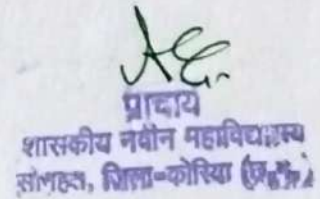 प्राचार्य
शासकीय नवीन महाविद्यालय
सोनहत, जिला-कोरिया